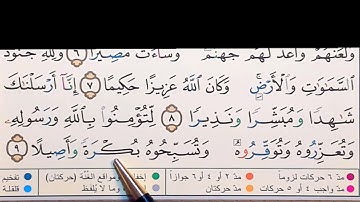 وَلَعَنَهُمْ وَأَعَدَّ لَهُمْ جَهَنَّمَ وَسَآءَتْ مَصِيرًا ٦ وَلِلَّهِ جُنُودُ
السَّمَٰوَٰتِ وَالْأَرْضِ ۚ وَكَانَ اللَّهُ عَزِيزًا حَكِيمًا ٧ إِنَّآ أَرْسَلْنَٰكَ
شَٰهِدًا وَمُبَشِّرًا وَنَذِيرًا ٨ لِّتُؤْمِنُوا۟ بِاللَّهِ وَرَسُولِهِۦ
وَتُعَزِّرُوهُ وَتُوَقِّرُوهُ وَتُسَبِّحُوهُ بُكْرَةً وَأَصِيلًا ٩
مدّ ٦ حركات لزوماً مدّ ٢ أو ٤ أو ٦ جوازاً إخفاء ومواقع الغنّة (حركتان) تفخيم
مدّ واجب ٤ أو ٥ حركات مدّ حركتان وما لا يُلفظ قلقلة